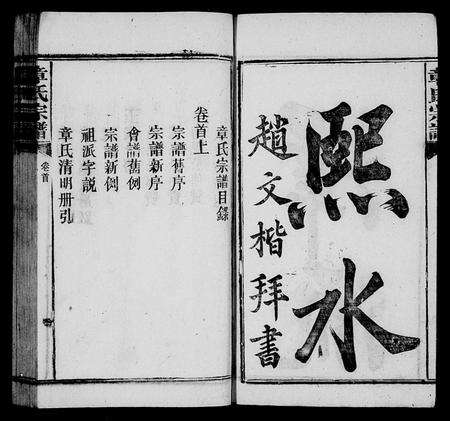 熙水
趙文楷拜書
章氏宗譜目錄
卷首上
宗譜舊序
宗譜新序
會譜舊例
宗譜新例
祖派字說
章氏清明册引
章氏宗譜
卷首